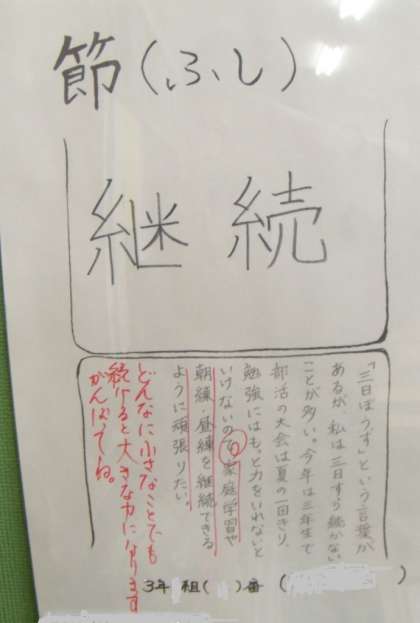 節(ふし)
継続
「三日ぼうず」という言葉が
あるが、私は三日すら続かない
ことが多い。今年は三年生で
部活の大会は夏の一回きり、
勉強にはもっと力をいれないと
いけないので、家庭学習や
朝練・昼練を継続できる
ように頑張りたい。
どんなに小さなことでも
続けると大きな力になります
がんばってね。
3年 組( )番 ( )